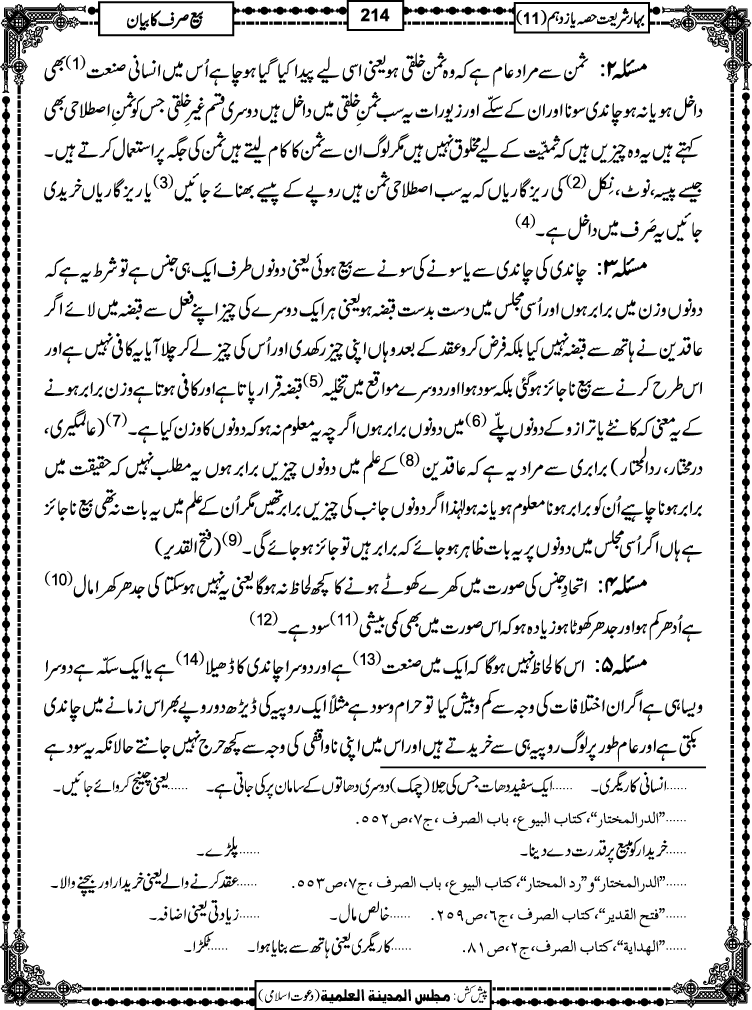 بہار شریعت حصہ یازدہم (11)
214
بیع صرف کا بیان
مسئلہ ۲: ثمن سے مراد عام ہے کہ وہ ثمن خلقی ہو یعنی اسی لیے پیدا کیا گیا ہو چاہے اُس میں انسانی صنعت (1) بھی
داخل ہو یا نہ ہو چاندی سونا اور ان کے سکّے اور زیورات یہ سب ثمن خلقی میں داخل ہیں دوسری قسم غیر خلقی جس کو ثمنِ اصطلاحی بھی
کہتے ہیں یہ وہ چیزیں ہیں کہ ثمنیّت کے لیے مخلوق نہیں ہیں مگر لوگ ان سے ثمن کا کام لیتے ہیں ثمن کی جگہ پر استعمال کرتے ہیں۔
جیسے پیسہ، نوٹ، نِکل (2) کی ریزگاریاں کہ یہ سب اصطلاحی ثمن ہیں روپے کے پیسے بھنائے جائیں (3) یا ریزگاریاں خریدی
جائیں یہ صَرف میں داخل ہے۔ (4)
مسئلہ ۳: چاندی کی چاندی سے یا سونے کی سونے سے بیع ہوئی یعنی دونوں طرف ایک ہی جنس ہے تو شرط یہ ہے کہ
دونوں وزن میں برابر ہوں اور اُسی مجلس میں دست بدست قبضہ ہو یعنی ہر ایک دوسرے کی چیز اپنے فعل سے قبضہ میں لائے اگر
عاقدین نے ہاتھ سے قبضہ نہیں کیا بلکہ فرض کرو عقد کے بعد وہاں اپنی چیز رکھدی اور اُس کی چیز لے کر چلا آیا یہ کافی نہیں ہے اور
اس طرح کرنے سے بیع ناجائز ہوگئی بلکہ سود ہوا اور دوسرے مواقع میں تخلیہ (5) قبضہ قرار پاتا ہے اور کافی ہوتا ہے وزن برابر ہونے
کے یہ معنی کہ کانٹے یا ترازو کے دونوں پلّے (6) میں دونوں برابر ہوں اگرچہ یہ معلوم نہ ہو کہ دونوں کا وزن کیا ہے۔ (7) (عالمگیری،
درمختار، ردالمحتار) برابری سے مراد یہ ہے کہ عاقدین (8) کے علم میں دونوں چیزیں برابر ہوں یہ مطلب نہیں کہ حقیقت میں
برابر ہونا چاہیے اُن کو برابر ہونا معلوم ہو یا نہ ہو لہٰذا اگر دونوں جانب کی چیزیں برابر تھیں مگر اُن کے علم میں یہ بات نہ تھی بیع ناجائز
ہے ہاں اگر اُسی مجلس میں دونوں پر یہ بات ظاہر ہو جائے کہ برابر ہیں تو جائز ہو جائے گی۔ (9) (فتح القدیر)
مسئلہ ۴: اتحادِ جنس کی صورت میں کھرے کھوٹے ہونے کا کچھ لحاظ نہ ہوگا یعنی یہ نہیں ہو سکتا کی جدھر کھرا مال (10)
ہے اُدھر کم ہو اور جدھر کھوٹا ہو زیادہ ہو کہ اس صورت میں بھی کمی بیشی (11) سود ہے۔ (12)
مسئلہ ۵: اس کا لحاظ نہیں ہوگا کہ ایک میں صنعت (13) ہے اور دوسرا چاندی کا ڈھیلا (14) ہے یا ایک سکّہ ہے دوسرا
ویسا ہی ہے اگر ان اختلافات کی وجہ سے کم و بیش کیا تو حرام و سود ہے مثلاً ایک روپیہ کی ڈیڑھ دو روپے بھر اس زمانے میں چاندی
بکتی ہے اور عام طور پر لوگ روپیہ ہی سے خریدتے ہیں اور اس میں اپنی ناواقفی کی وجہ سے کچھ حرج نہیں جانتے حالانکہ یہ سود ہے
......انسانی کاریگری۔ ......ایک سفید دھات جس کی جلا (چمک) دوسری دھاتوں کے سامان پر کی جاتی ہے۔ ......یعنی چینج کروائے جائیں۔
......”الدرالمختار“، کتاب البیوع، باب الصرف، ج۷، ص۵۵۲.
......خریدار کو مبیع پر قدرت دے دینا۔ ......پلڑے۔
......”الدرالمختار“و”رد المحتار“، کتاب البیوع، باب الصرف، ج۷، ص۵۵۳. ......عقد کرنے والے یعنی خریدار اور بیچنے والا۔
......”فتح القدیر“، کتاب الصرف، ج۶، ص۲۵۹. ......خالص مال۔ ......زیادتی یعنی اضافہ۔
......”الهداية“، کتاب الصرف، ج۲، ص۸۱. ......کاریگری یعنی ہاتھ سے بنایا ہوا۔ ......ٹکڑا۔
پیش کش: مجلس المدینة العلمیة (دعوت اسلامی)